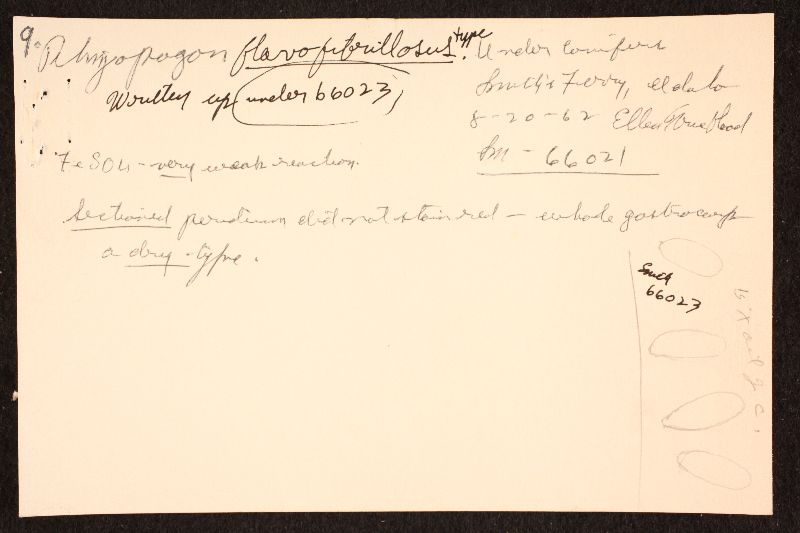 9. Rhizopogon flavofibrillosus. type
Written up under 66023,
Under conifers
Smith's Ferry, Idaho
8-20-62 Ellen Trueblood
Sm - 66021
FeSO4 - very weak reaction.
Sectioned peridium did not stain red - whole gastrocarp
a dry - type.
Smith
66023
15 X oil